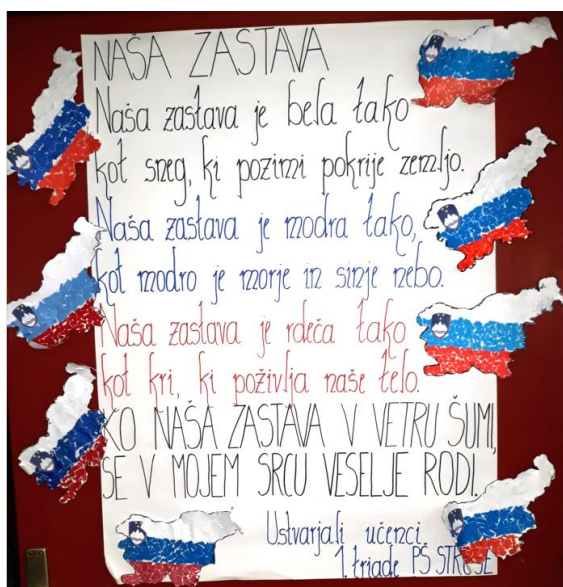 NAŠA ZASTAVA
Naša zastava je bela tako
kot sneg, ki pozimi pokrije zemljo.
Naša zastava je modra tako,
kot modro je morje in sinje nebo.
Naša zastava je rdeča tako
kot kri, ki poživlja naše telo.
KO NAŠA ZASTAVA V VETRU ŠUMI,
SE V MOJEM SRCU VESELJE RODI.
Ustvarjali učenci
1. triade PŠ